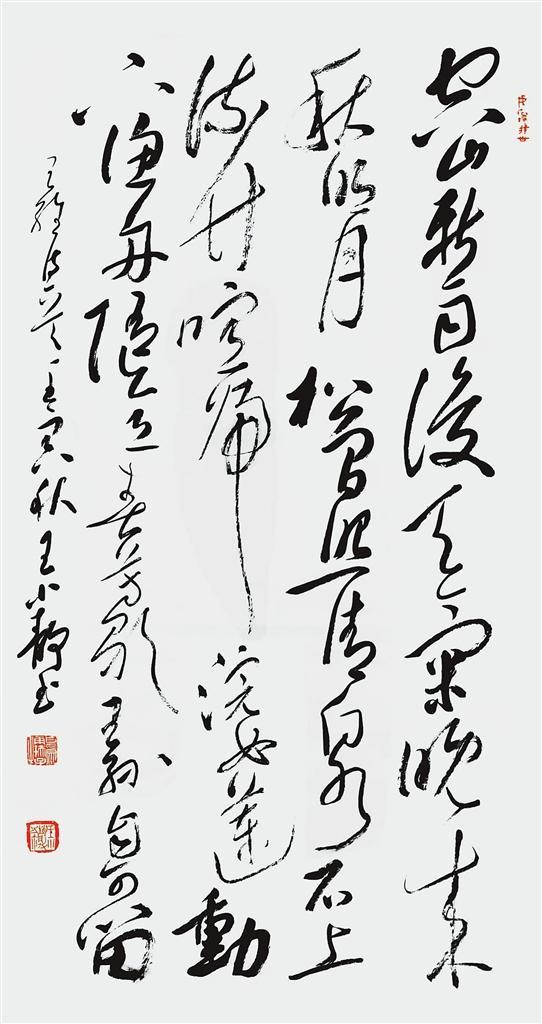 空山新雨後天氣晚來
秋明月松間照清泉石上
流竹喧歸浣女蓮動
下漁舟隨意春芳歇王孫自可留
王維詩 壬寅秋王小靜书